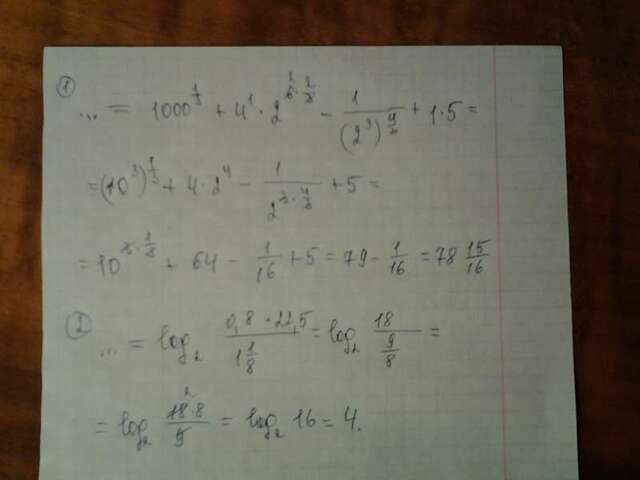 ①
... = 1000^(1/3) + 4^1 · 2^(6 · 2/3) − 1/(2^3)^(4/3) + 1·5 =
= (10^3)^(1/3) + 4·2^4 − 1/2^(3 · 4/3) + 5 =
= 10^(3 · 1/3) + 64 − 1/16 + 5 = 79 − 1/16 = 78 15/16
②
... = log₂ (0,8 · 22,5)/(1 1/8) = log₂ 18/(9/8) =
= log₂ (18·8)/9 = log₂ 16 = 4.